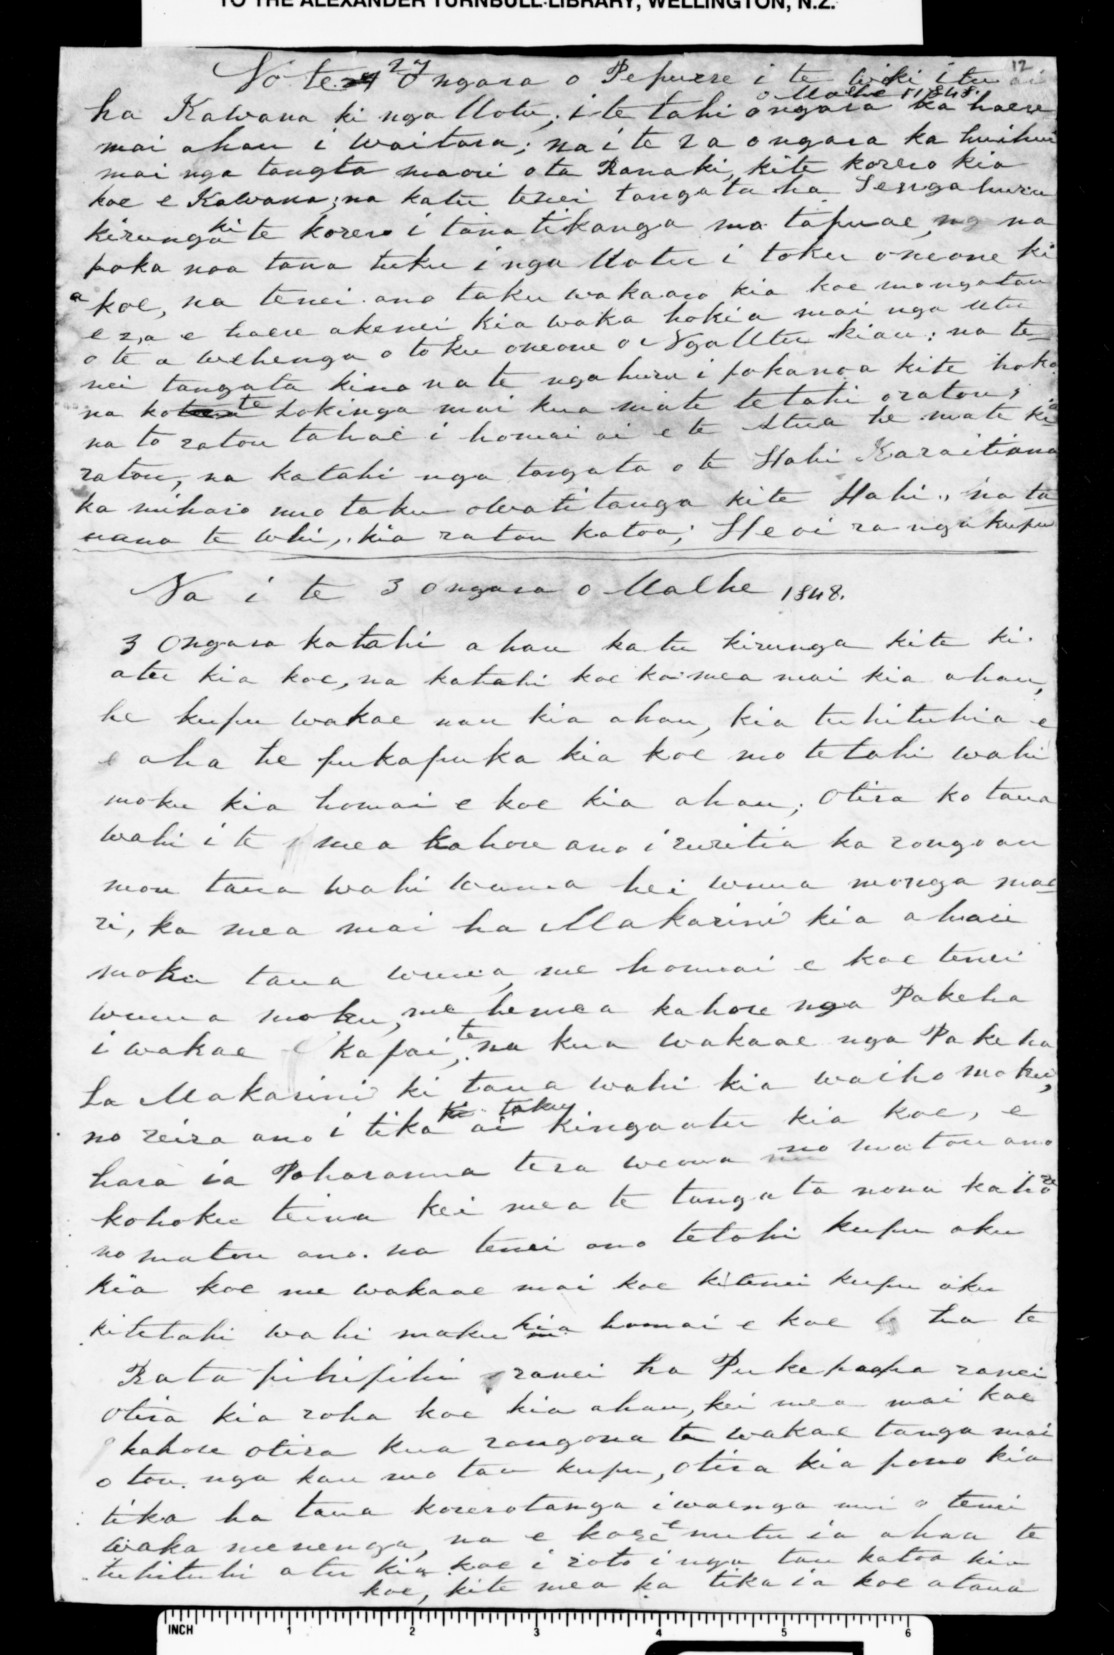 TO THE ALEXANDER TURNBULL LIBRARY, WELLINGTON, N.Z.
12
No te 27 O ngara o Pepuere i te wiki i tu ai
o Maehe 1 1848.
ha Kawana ki nga Motu; i te tahi o ngara ka haere
mai ahau i Waitara; na i te 2 a o ngara ka huihui
mai nga tangta maori o ta Ranaki, kite korero kia
koe e Kawana; na katu tenei tangata ha Tengahuru
kirunga ki te korero i tana tikanga mo tapuae, na
poka noa tana tuku i nga Uotu i toku oneone ki
a koe, na tenei ano taku wakaaro kia koe
e haere akenei kia waka hokia mai nga utu
o te a wehenga o toku oneone o Nga Utu kiau: na te
nei tangata kino na te ngahuru i pokanoa kite hoko
na ko te hokinga mai kua mate tetahi oratou;
na to ratou tahae i homai ai e te Atua he mate ki a
ratou, na katahi nga tangata o te Hahi Karaitiana
ka miharo mo taku owatitanga kite Hahi., na ta
te whi, kia ratou katoa; Heoi ra nga kupu
Na i te 3 o ngara o Maehe 1848.
3 Ongara katahi ahau ka tu kirunga kite ki
atu kia koe, na katahi koe ka mea mai kia ahau,
he kupu wakae nau kia ahau, kia tuhituhia e
e aha he pukapuka kia koe mo tetahi wahi
moku kia homai e koe kia ahau; Otira ko taua
wahi i te mea kahore ano i ruritia ka rongo au
mou taua wahi wenua hei wenua monga mao
ri, ka mea mai ha Makarini kia ahau
moku taua wenua, me homai e koe tenei
wenua moku, me hemea kahore nga Pakeha
i wakae kapai, te na kua wakaae nga Pakeha
ha Makarini ki taua wahi kia waiho moku,
no reira ano i tika ai taku kingaatu kia koe, e
hara ia Poharama tera wenua no matou ano
kohoku teina kei mea te tangata nona kahore
no matou ano. na tenei ano tetahi kupu aku
kia koe me wakaae mai koe kitenei kupu aku
kitetahi wahi maku kia homai e koe ha te
Rata pihipihi ranei ha Pukepapa ranei
otira kia roha koe kia ahau, kei mea mai koe
kahore otira kua rangona te wakae tanga mai
o tou nga kau mo tau kupu, otira kia pono kia
tika ha taua korerotanga iwaenga nui o tenei
waka menenga, na e kore e mutu ia ahau te
tuhituhi atu kia koe i roto i nga tau katoa kia
koe, kite mea ka tika ia koe ataua
INCH 1 2 3 4 5 6